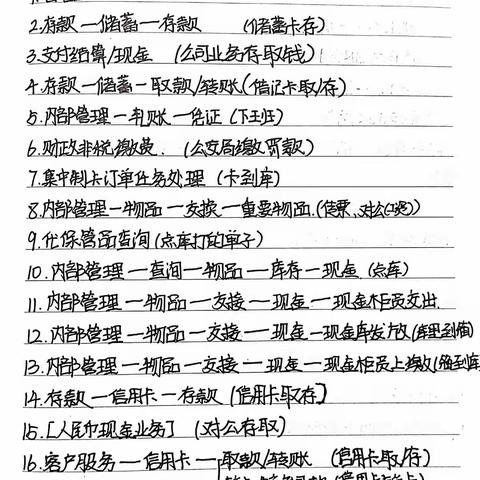 2.存款一储蓄一存款 (储蓄卡存)
3.支付结算/现金 (公司业务存取钱)
4.存款一储蓄一取款/转账(借记卡取/存)
5.内部管理一轧账一凭证(下班)
6.财政非税缴费.(公安局缴罚款)
7.集中制卡订单任务处理(卡到库)
8.内部管理一物品一交换一重要物品.
9.代保管品查询(点库打的单子)
10.内部管理一查询一物品一库存一现金(点库)
11.内部管理一物品一交接一现金一现金柜员交出.
12.内部管理一物品一交接一现金一现金库发放(库里到箱)
13.内部管理一物品一交接一现金一现金柜员上缴(箱到库)
14.存款一信用卡一存款(信用卡取存]
15.[人民币现金业务](对公存取)
16.客户服务一信用卡一取款/转账(信用卡取/存)